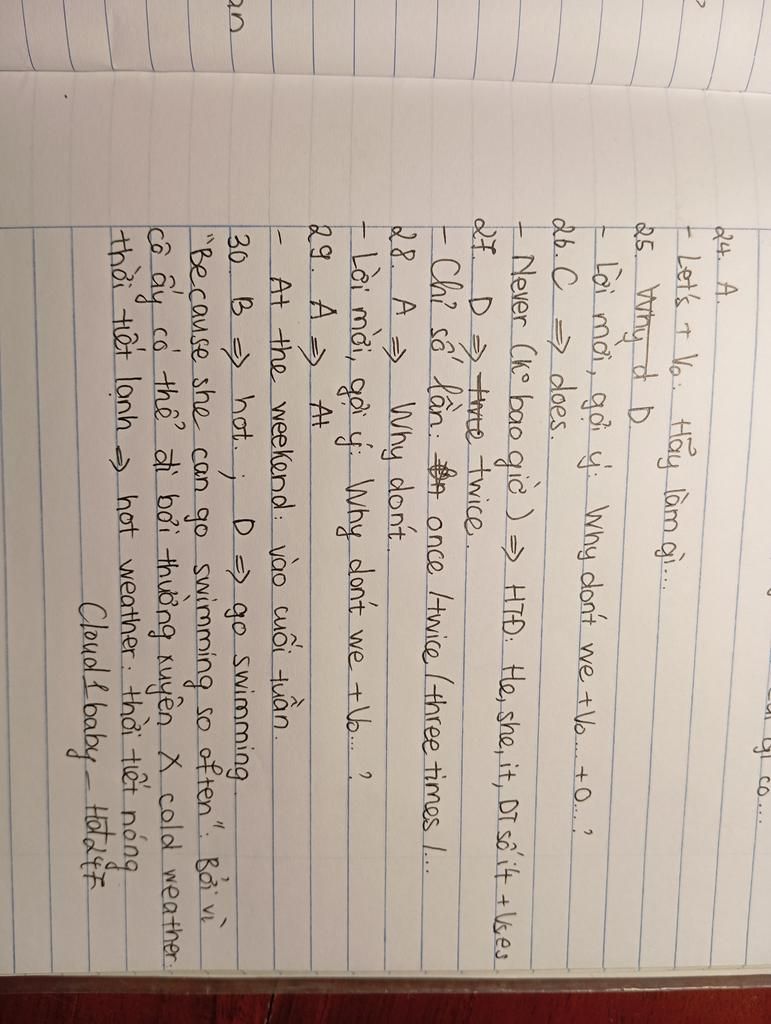 an
24. A.
- Let's + Vo: Hãy làm gì...
25. Why d D
- Lời mời, gợi ý: Why don't we + Vo... + O...?
26. C => does.
- Never (k° bao giờ) => HTĐ: He, she, it, DT số ít + Vs, es
27. D => twice twice.
- Chỉ số lần: once / twice / three times /...
28. A => Why don't.
- Lời mời, gợi ý: Why don't we + Vo...?
29. A => At
- At the weekend: vào cuối tuần.
30. B => hot. ; D => go swimming
"Because she can go swimming so often": Bởi vì
cô ấy có thể đi bơi thường xuyên X cold weather:
thời tiết lạnh => hot weather: thời tiết nóng
Cloud1baby - Hot247